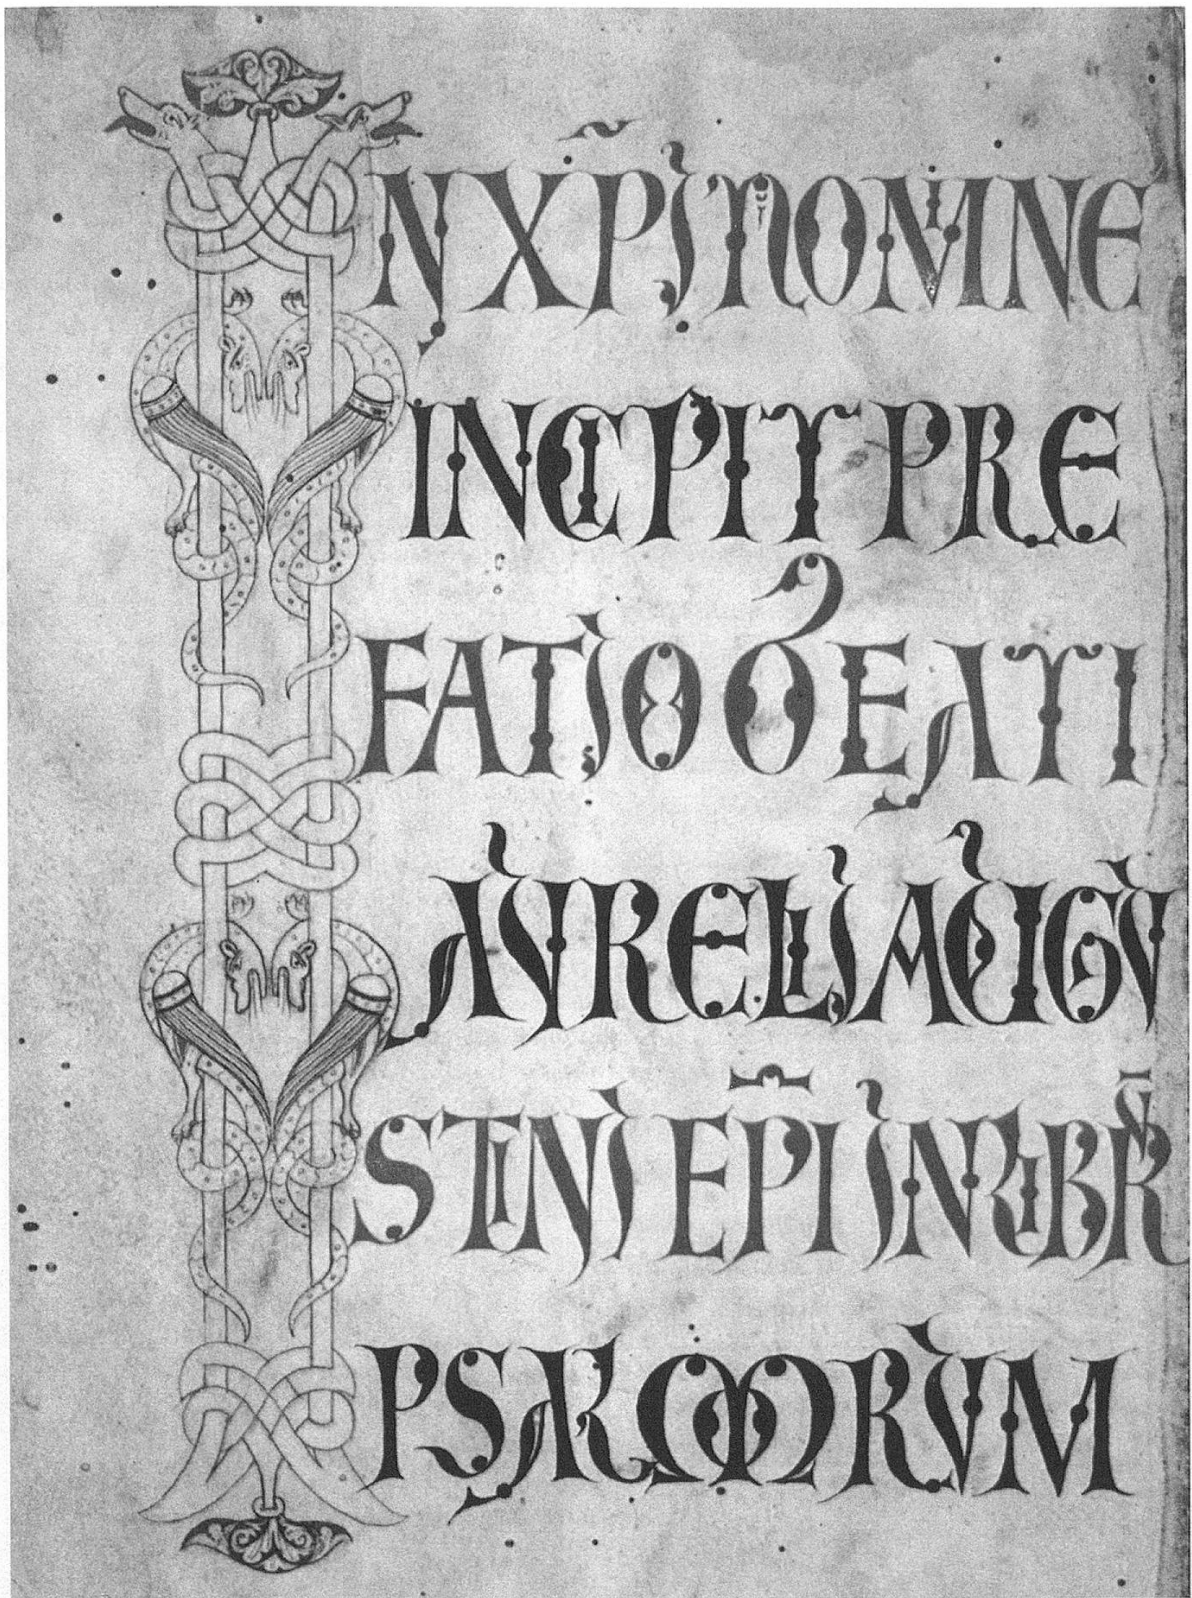 IN XP̄I NOMINE
INCIPIT PRE
FATIO BEATI
AVRELII AVGV
STINI EP̄I IN LIBRV̄
PSALMORVM